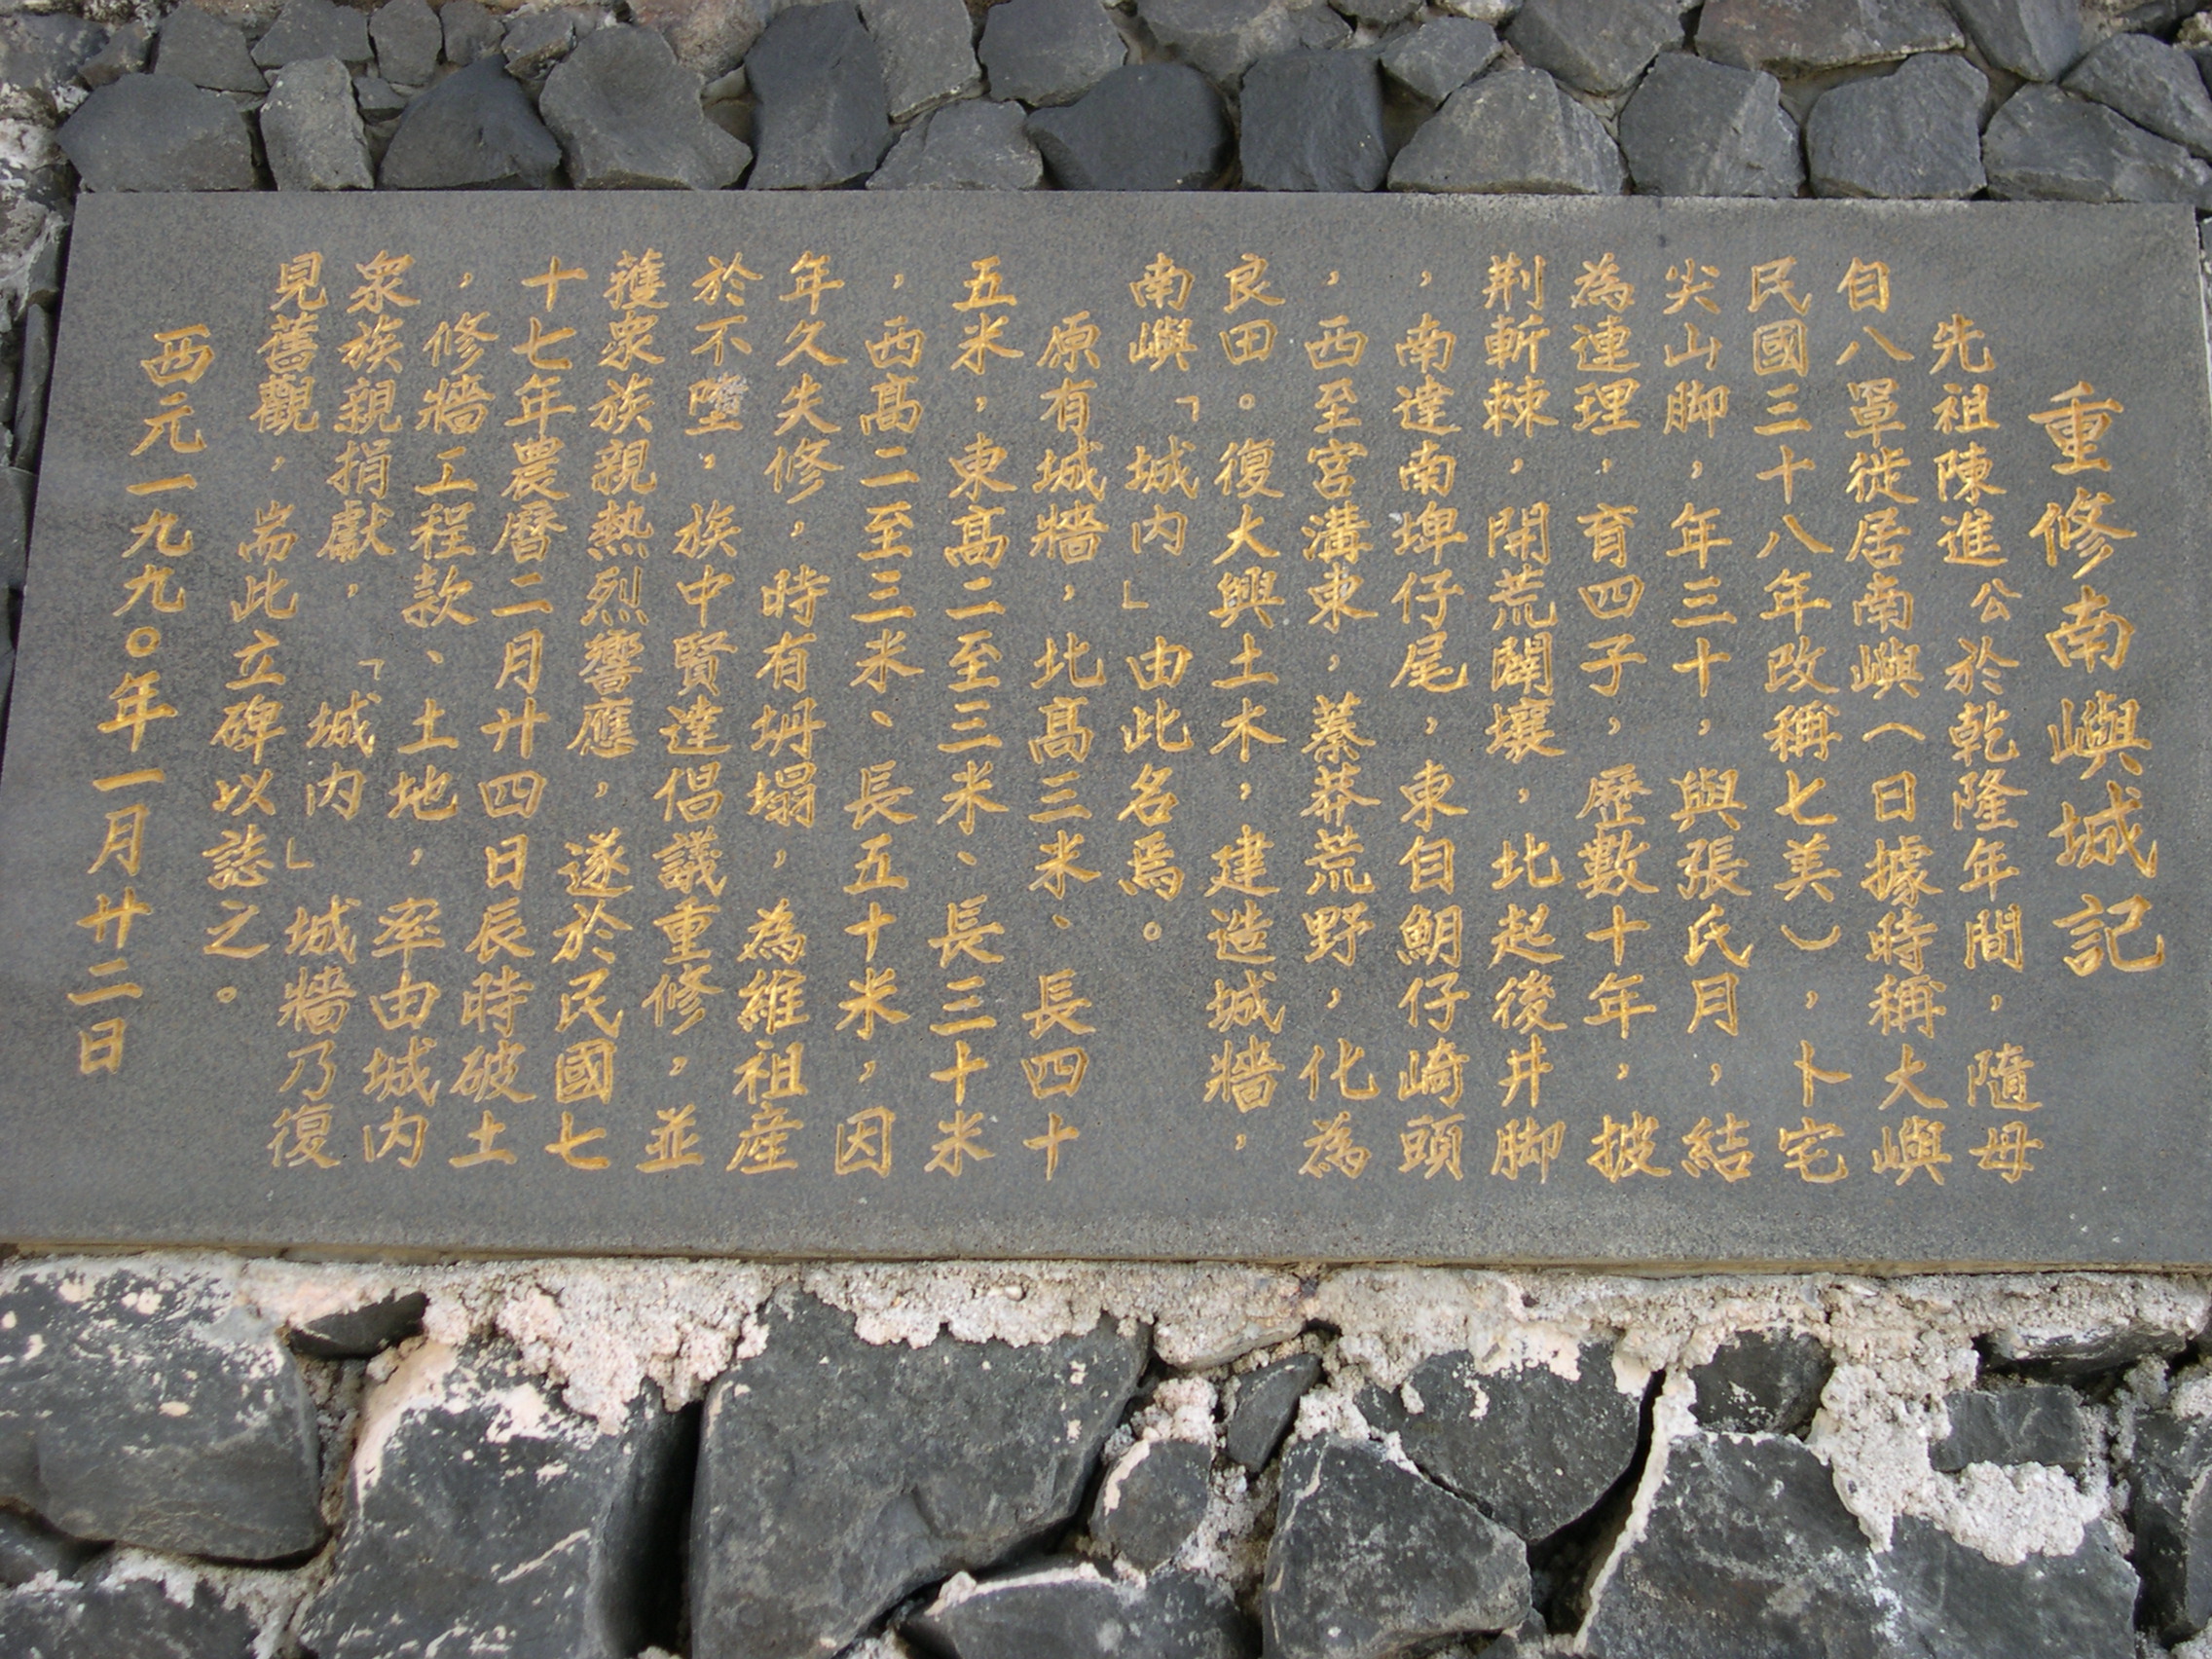 重修南嶼城記
先祖陳進公於乾隆年間，隨母
自八罩徙居南嶼（日據時稱大嶼
民國三十八年改稱七美），卜宅
尖山脚，年三十，與張氏月，結
為連理，育四子，歷數十年，披
荆斬棘，開荒闢壤，北起後井脚
，南達南埤仔尾，東自鯝仔崎頭
，西至宮溝東，蓁莽荒野，化為
良田。復大興土木，建造城牆，
南嶼「城內」由此名焉。
原有城牆，北高三米、長四十
五米，東高二至三米、長三十米
，西高二至三米、長五十米，因
年久失修，時有坍塌，為維祖產
於不墮，族中賢達倡議重修，並
獲衆族親熱烈響應，遂於民國七
十七年農曆二月廿四日辰時破土
，修牆工程款、土地，率由城內
衆族親捐獻，「城內」城牆乃復
見舊觀，耑此立碑以誌之。
西元一九九〇年一月廿二日